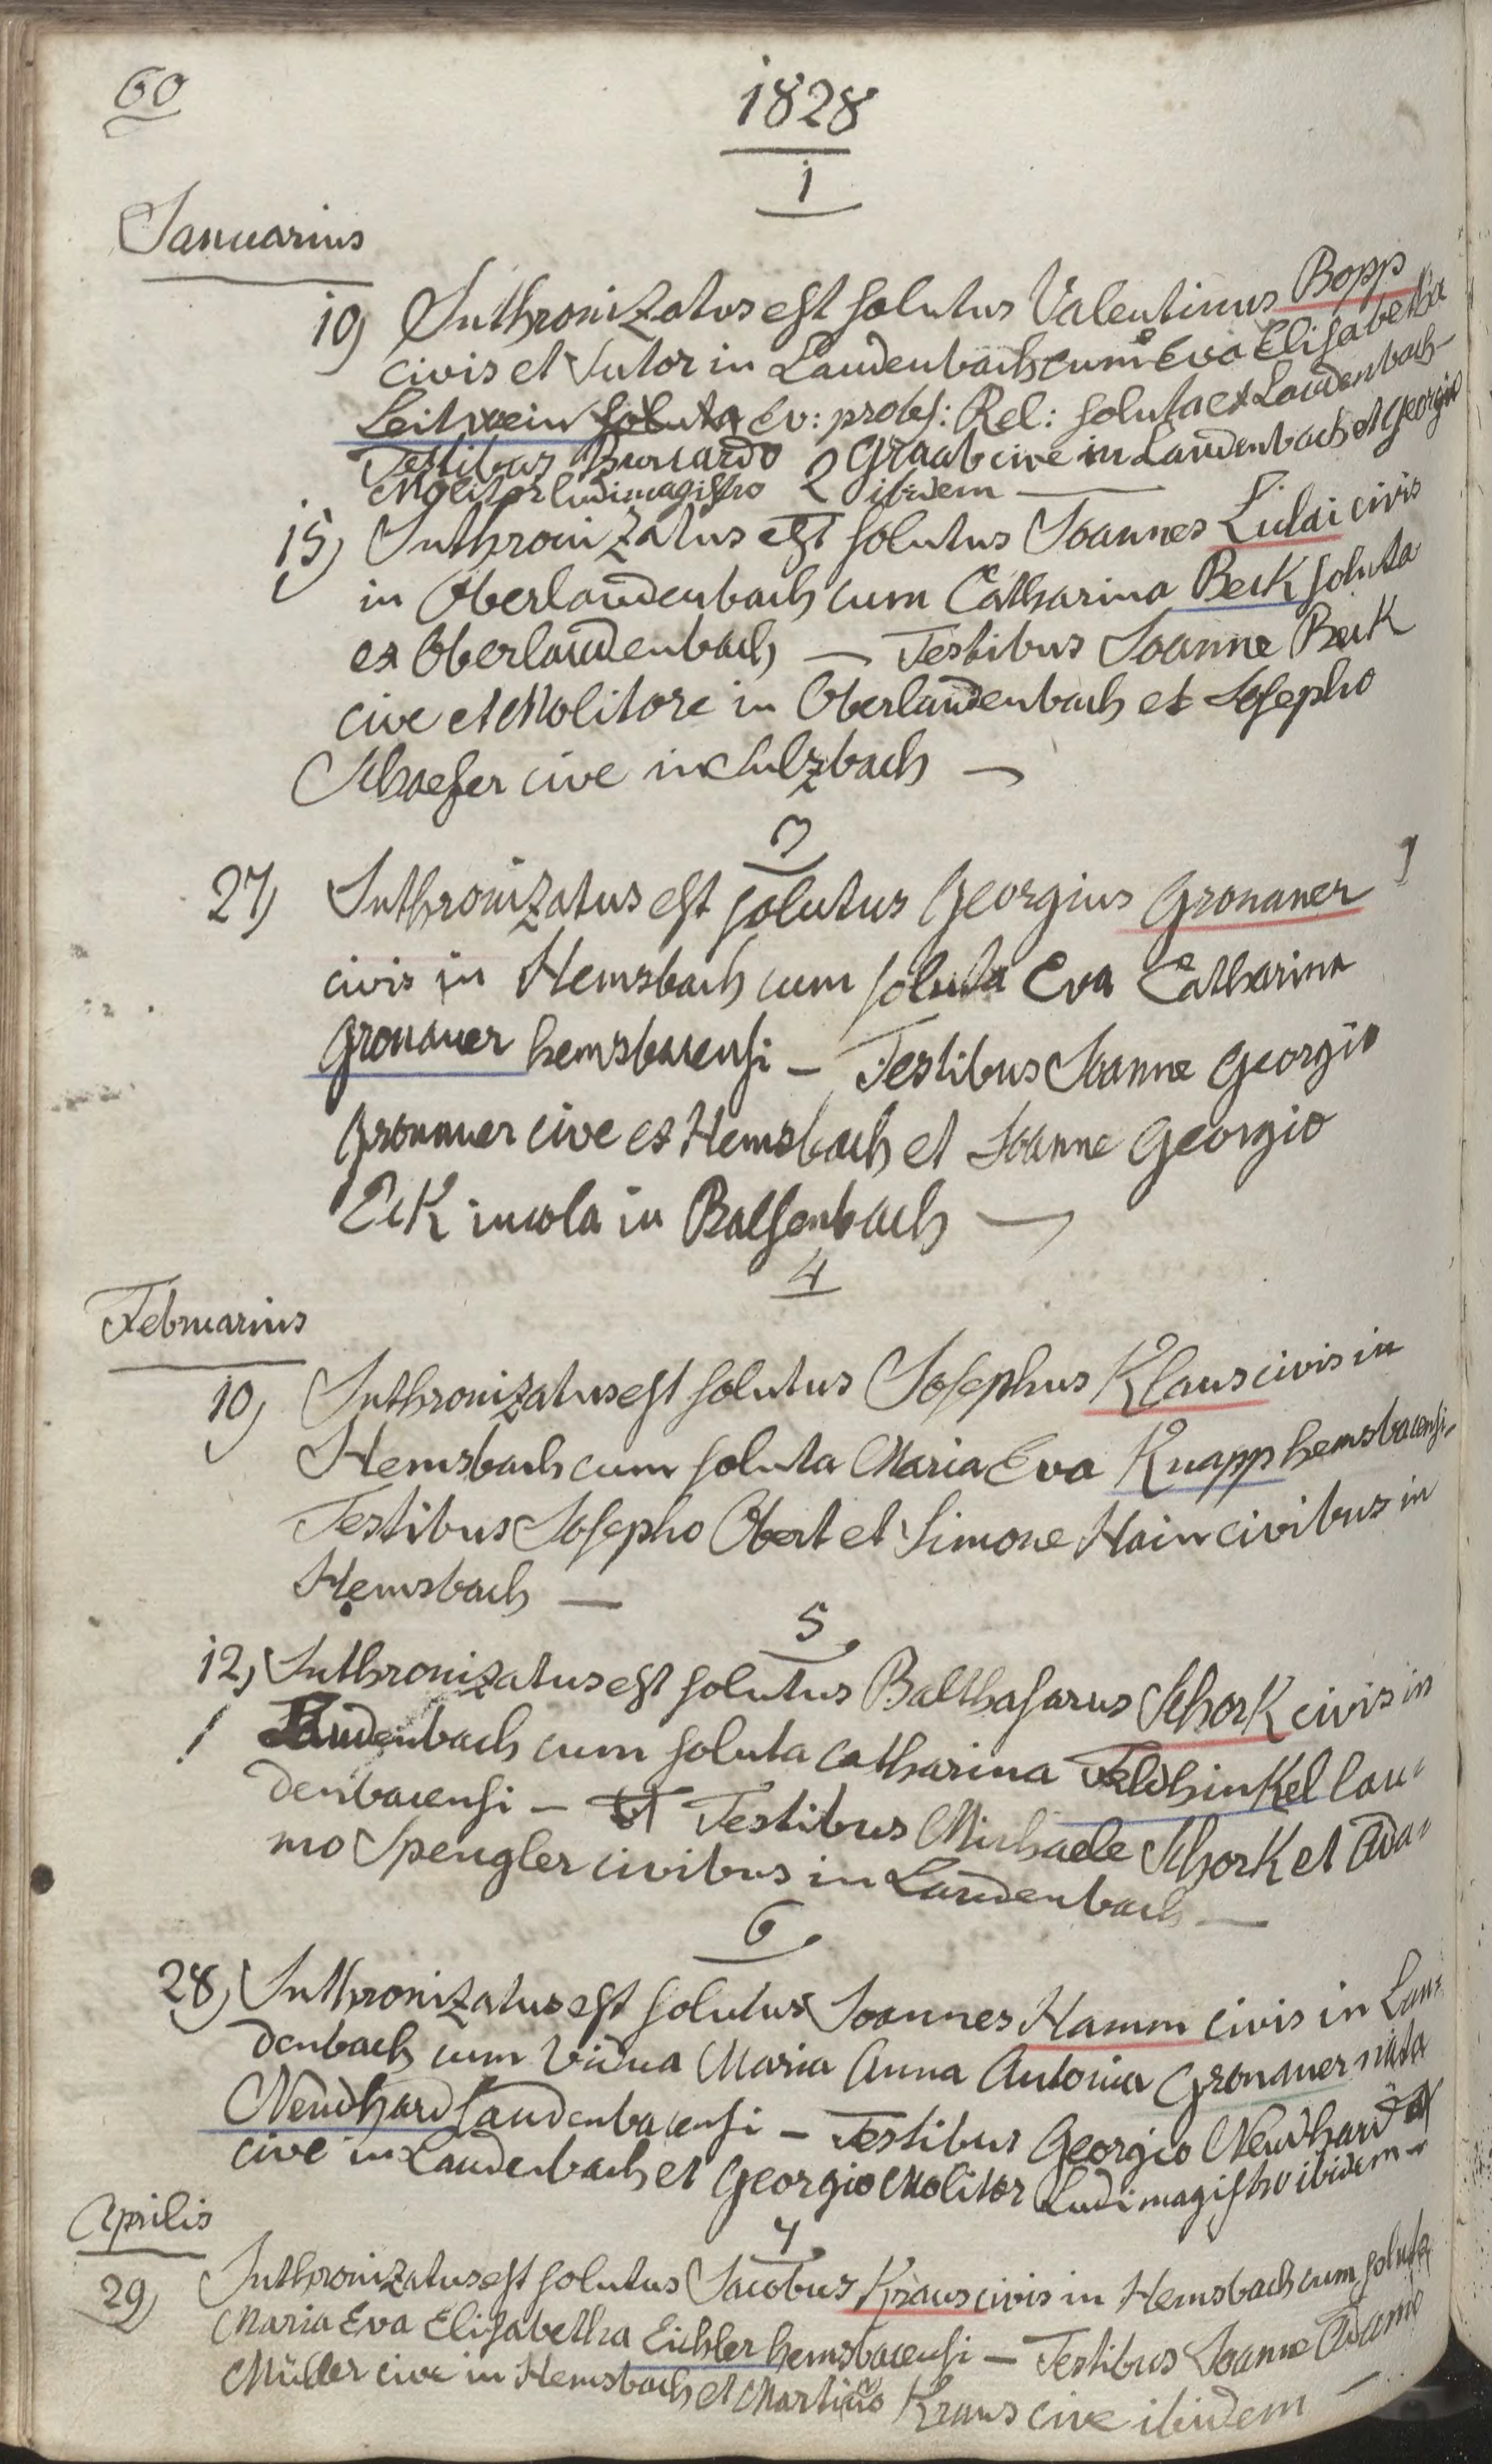 60
1828
1
Januarius
10) Inthronizatus est solutus Valentinus Bopp
civis et sutor in Laudenbach cum Eva Elisabetha
Leitwein soluta Ev: protest: Rel: soluta ex Laudenbach-
Testibus Burcardo Graab cive in Laudenbach et Georgio
Molitor ludimagistro ibidem —
2
15) Inthronizatus est solutus Joannes Lulai civis
in Oberlaudenbach cum Catharina Beck soluta
ex Oberlaudenbach — Testibus Joanne Beck
cive et Molitore in Oberlaudenbach et Josepho
Schaefer cive in Sulzbach —
3
27) Inthronizatus est solutus Georgius Gronauer
civis in Hemsbach cum soluta Eva Catharina
Gronauer hemsbacensi – Testibus Joanne Georgio
Gronauer cive ex Hemsbach et Joanne Georgio
Eck incola in Balsenbach —
4
Februarius
10) Inthronizatus est solutus Josephus Klaus civis in
Hemsbach cum soluta Maria Eva Knapp hemsbacensi-
Testibus Josepho Obert et Simone Hain civibus in
Hemsbach —
5
12) Inthronizatus est solutus Balthasarus Schork civis in
! Laudenbach cum soluta Catharina Feldhinkel lau=
denbacensi – Testibus Michaele Schork et Ada=
mo Spengler civibus in Laudenbach —
6
28) Inthronizatus est solutus Joannes Hamm civis in Lau=
denbach cum vidua Maria Anna Antonia Gronauer nata
Neudhard laudenbacensi – Testibus Georgio Neudhard
cive in Laudenbach et Georgio Molitor Ludimagistro ibidem –
7
Aprilis
29) Inthronizatus est solutus Jacobus Kraus civis in Hemsbach cum soluta
Maria Eva Elisabetha Eichler hemsbacensi — Testibus Joanne Adamo
Müller cive in Hemsbach et Martino Kraus cive ibidem —